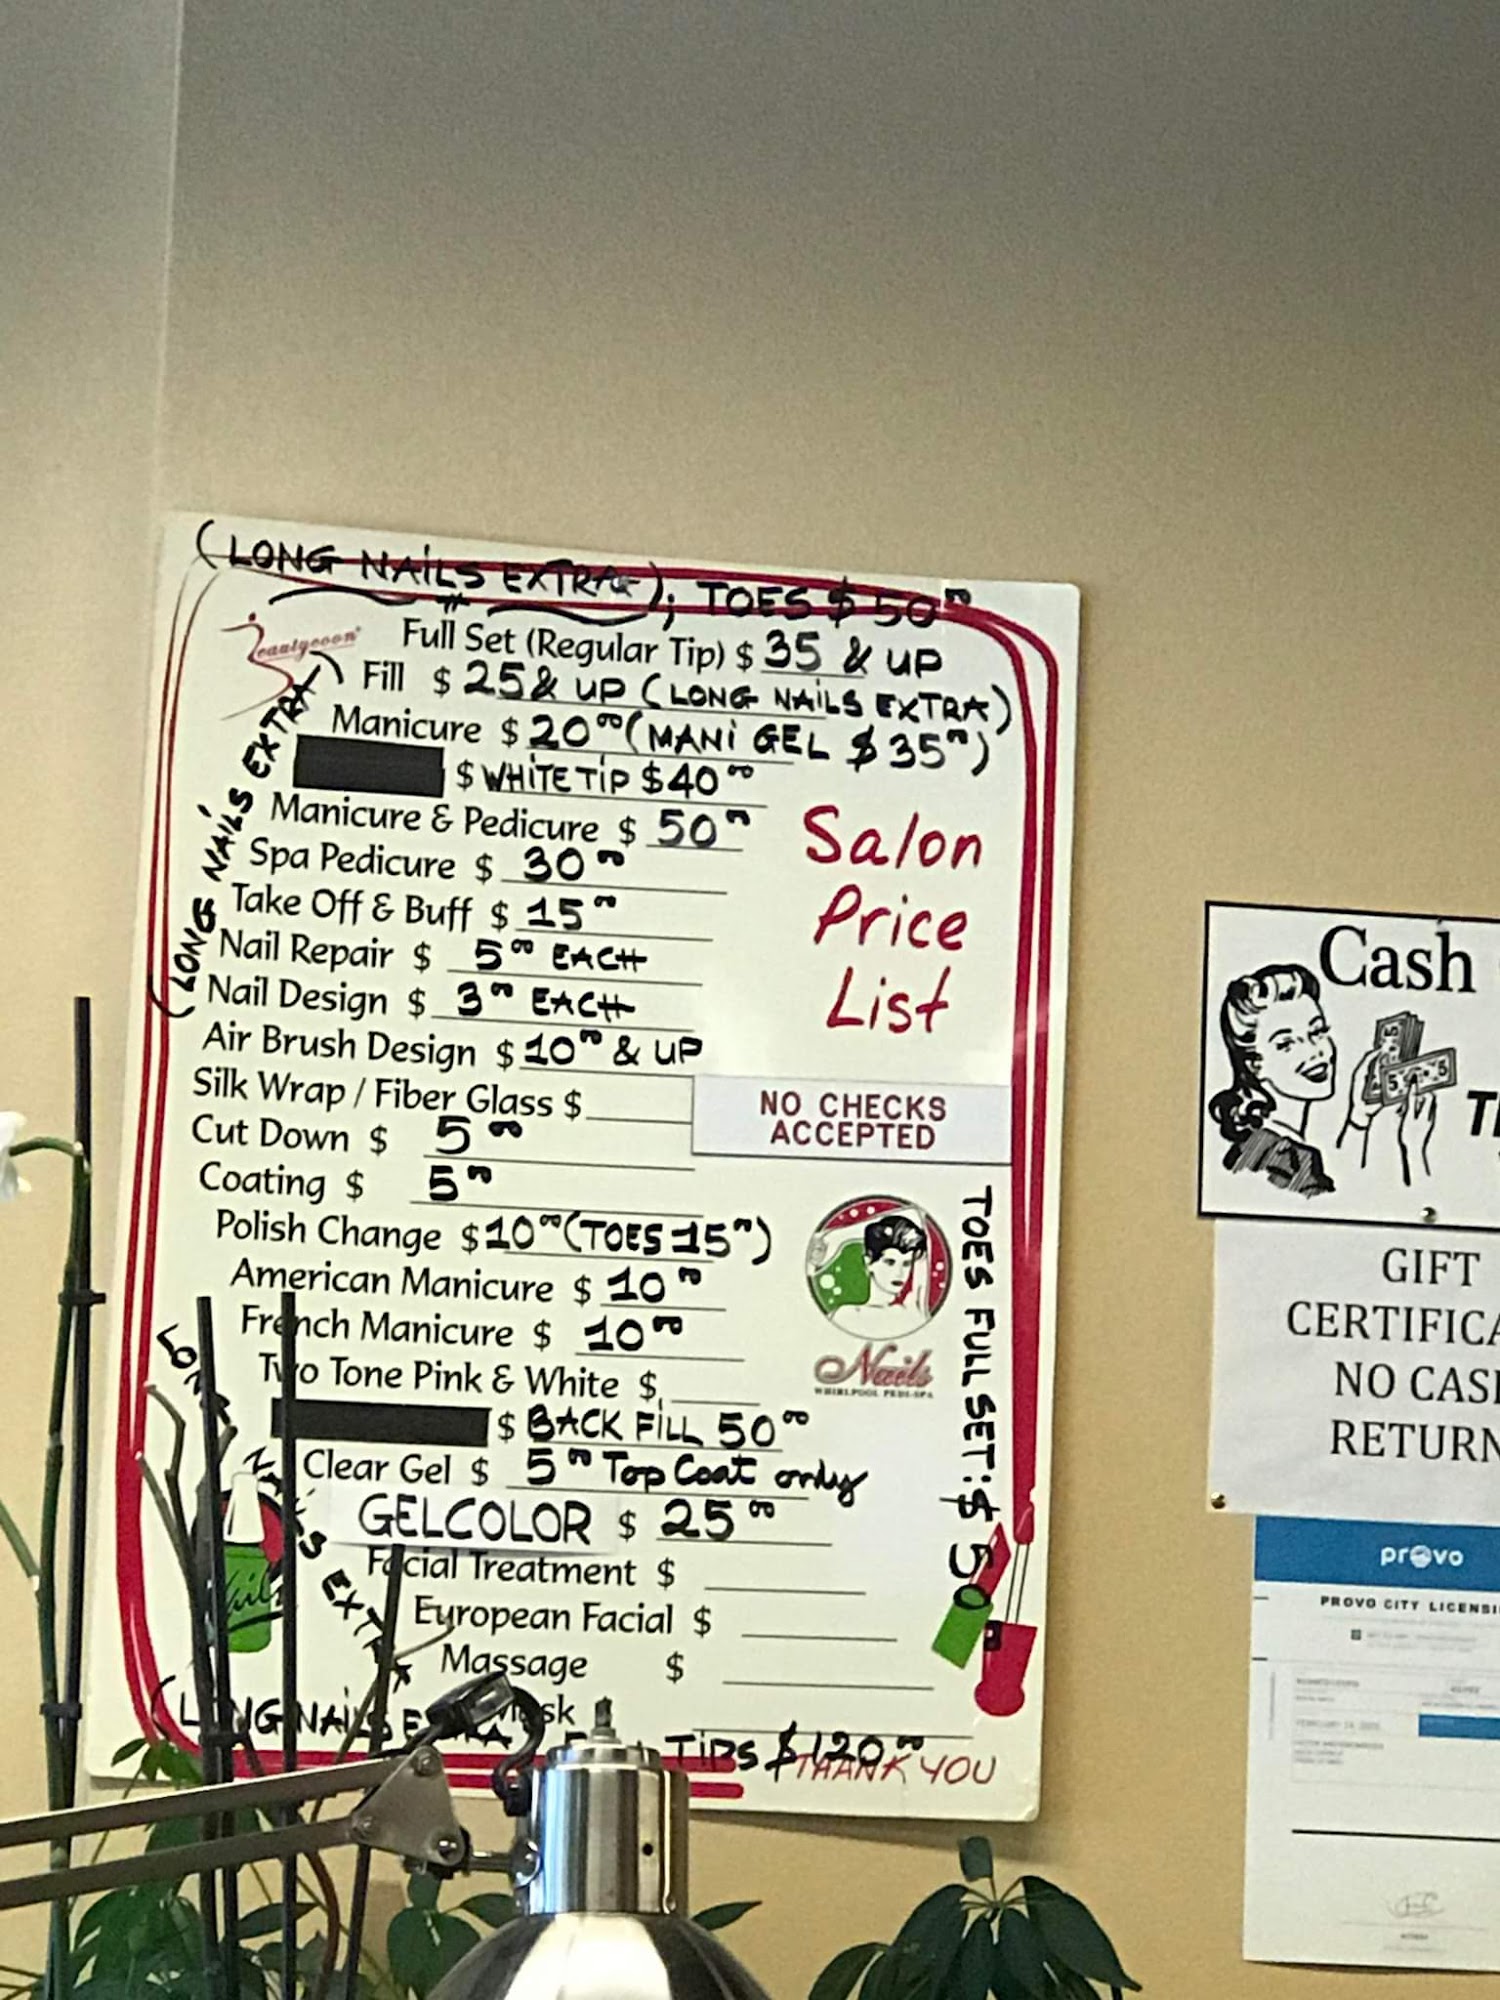 (LONG NAILS EXTRA); TOES $50⁰⁰
Beautycoon
Full Set (Regular Tip) $ 35 & UP
Fill $ 25 & UP (LONG NAILS EXTRA)
Manicure $ 20⁰⁰ (MANI GEL $35⁰⁰)
$ WHITE TIP $40⁰⁰
Manicure & Pedicure $ 50⁰⁰
Spa Pedicure $ 30⁰⁰
Take Off & Buff $ 15⁰⁰
Nail Repair $ 5⁰⁰ EACH
Nail Design $ 3⁰⁰ EACH
Air Brush Design $ 10⁰⁰ & UP
Silk Wrap / Fiber Glass $
Cut Down $ 5⁰⁰
Coating $ 5⁰⁰
Polish Change $ 10⁰⁰ (TOES 15⁰⁰)
American Manicure $ 10⁰⁰
French Manicure $ 10⁰⁰
Two Tone Pink & White $
$ BACK FILL 50⁰⁰
Clear Gel $ 5⁰⁰ Top Coat only
GELCOLOR $ 25⁰⁰
Facial Treatment $
European Facial $
Massage $
(LONG NAILS EXTRA
TIPS $120⁰⁰
THANK YOU
(LONG NAILS EXTRA)
LONG NAILS EXTRA
Salon
Price
List
NO CHECKS
ACCEPTED
Nails
WHIRLPOOL PEDI-SPA
TOES FULL SET: $ 50⁰⁰
Nails
Cash
GIFT
NO
provo
PROVO CITY